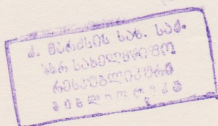 კ. მარქსის სახ. საქ.
სსრ სახელმწიფო
რესპუბლიკური
ბიბლიოთეკა